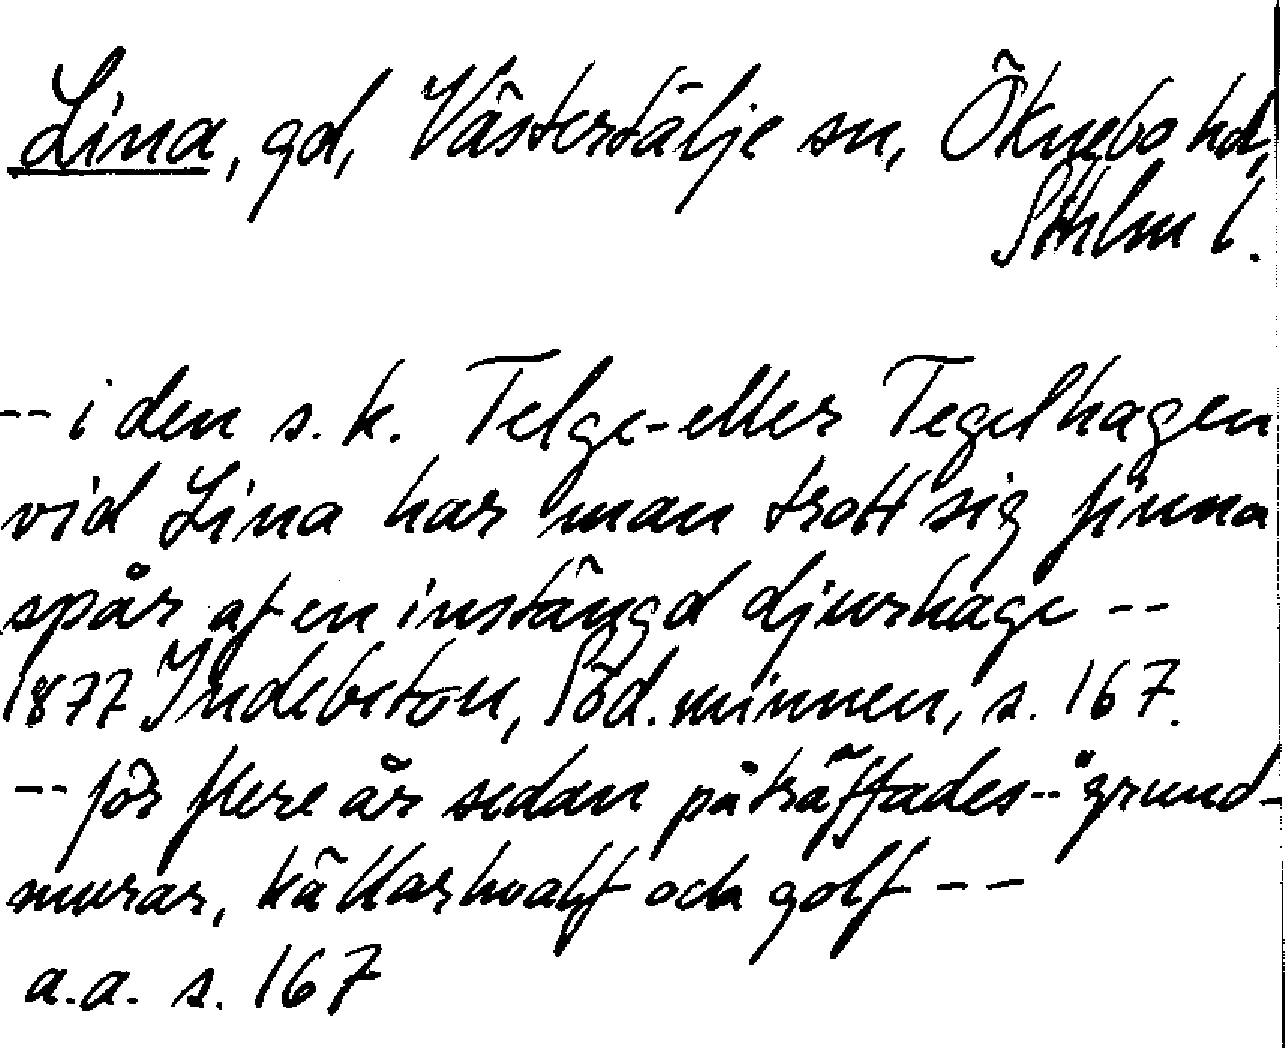 Lina, gd, Västertälje sn, Öknebo hd,
Sthlm l.
-- i den s.k. Telge- eller Tegelhagen
vid Lina har man trott sig finna
spår af en instängd djurhage --
1877 Indebetou, Söd. minnen, s. 167.
-- för flere år sedan påträffades -- "grund-
murar, källarhvalf och golf --
a.a. s. 167